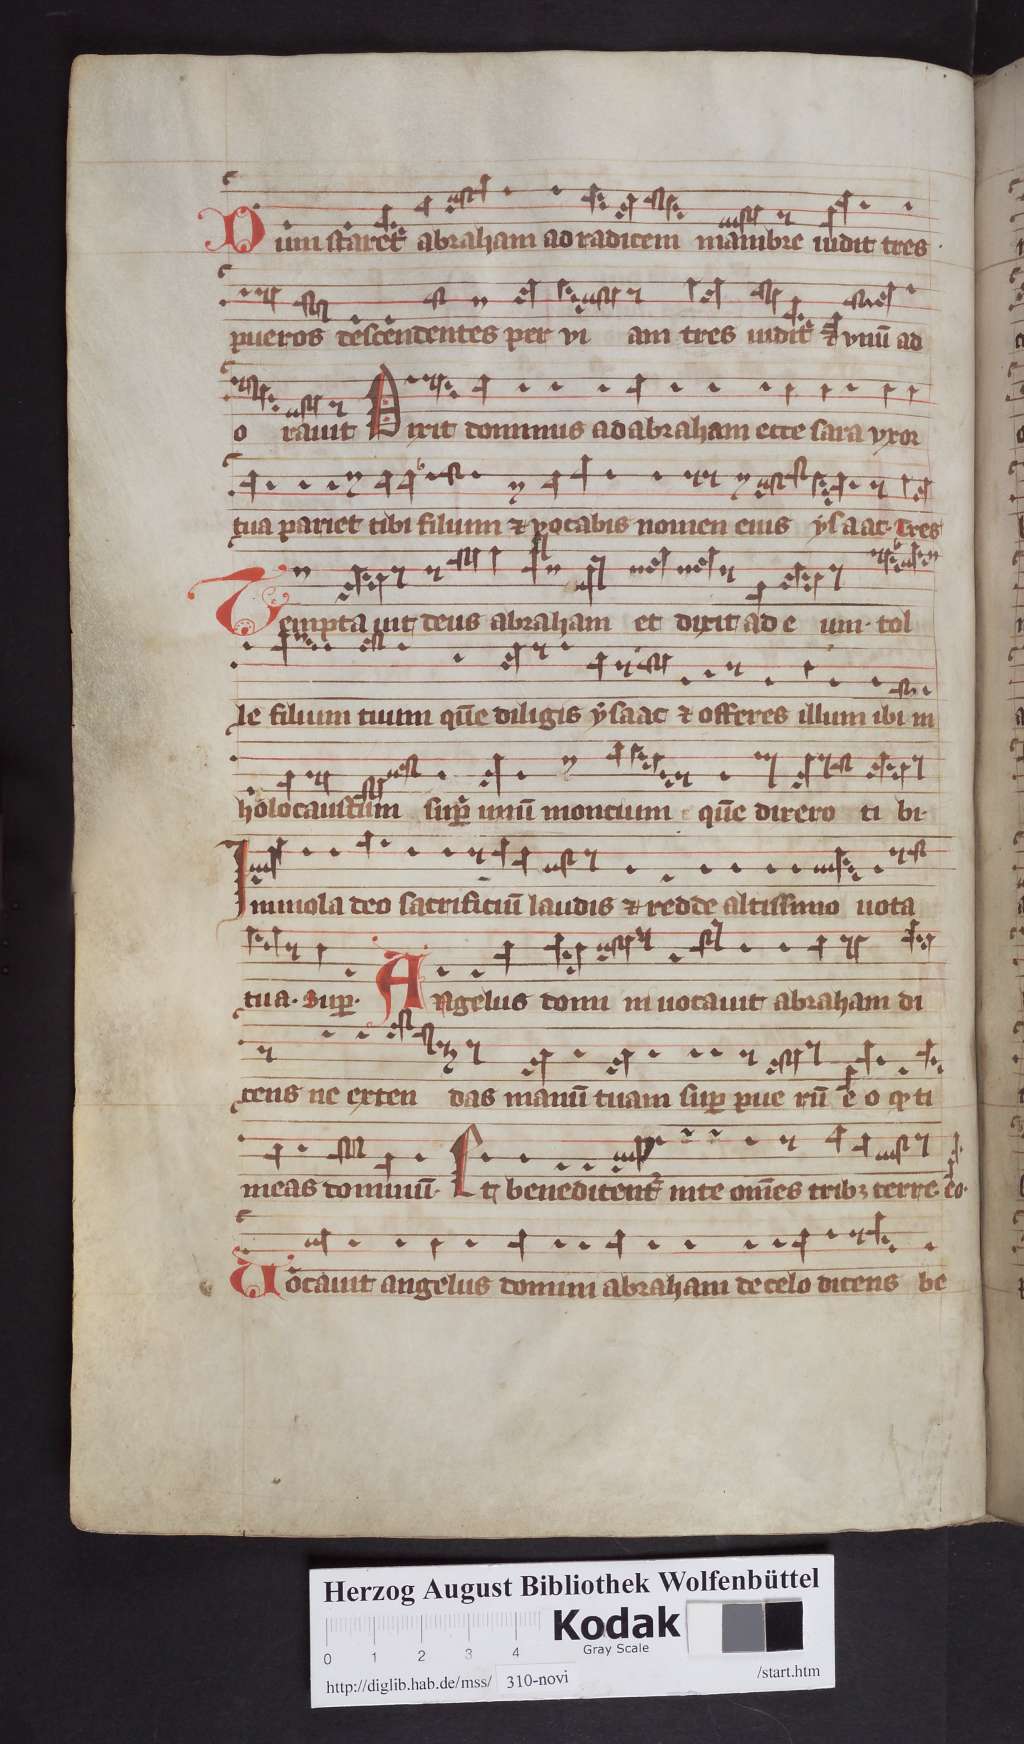 Dum staret abraham ad radicem mambre uidit tres
pueros descendentes per vi am tres uidit & vnū ad
o rauit Dixit dominus ad abraham ecce sara vxor
tua pariet tibi filium & vocabis nomen eius ysaac. Tres
Tempta uit deus abraham et dixit ad e um. tol
le filium tuum quē diligis ysaac & offeres illum ibi in
holocaustum sup unū montium quē dixero ti bi.
Immola deo sacrificiū laudis & redde altissimo uota
tua. Sup. Angelus domi ni uocauit abraham di
cens ne exten das manū tuam sup pue rū e o q ti
meas dominū. Et benedicent in te om̄es trib; terre. eo.
Uocauit angelus domini abraham de celo dicens be
Herzog August Bibliothek Wolfenbüttel
Kodak
Gray Scale
0 1 2 3 4
http://diglib.hab.de/mss/ 310-novi /start.htm